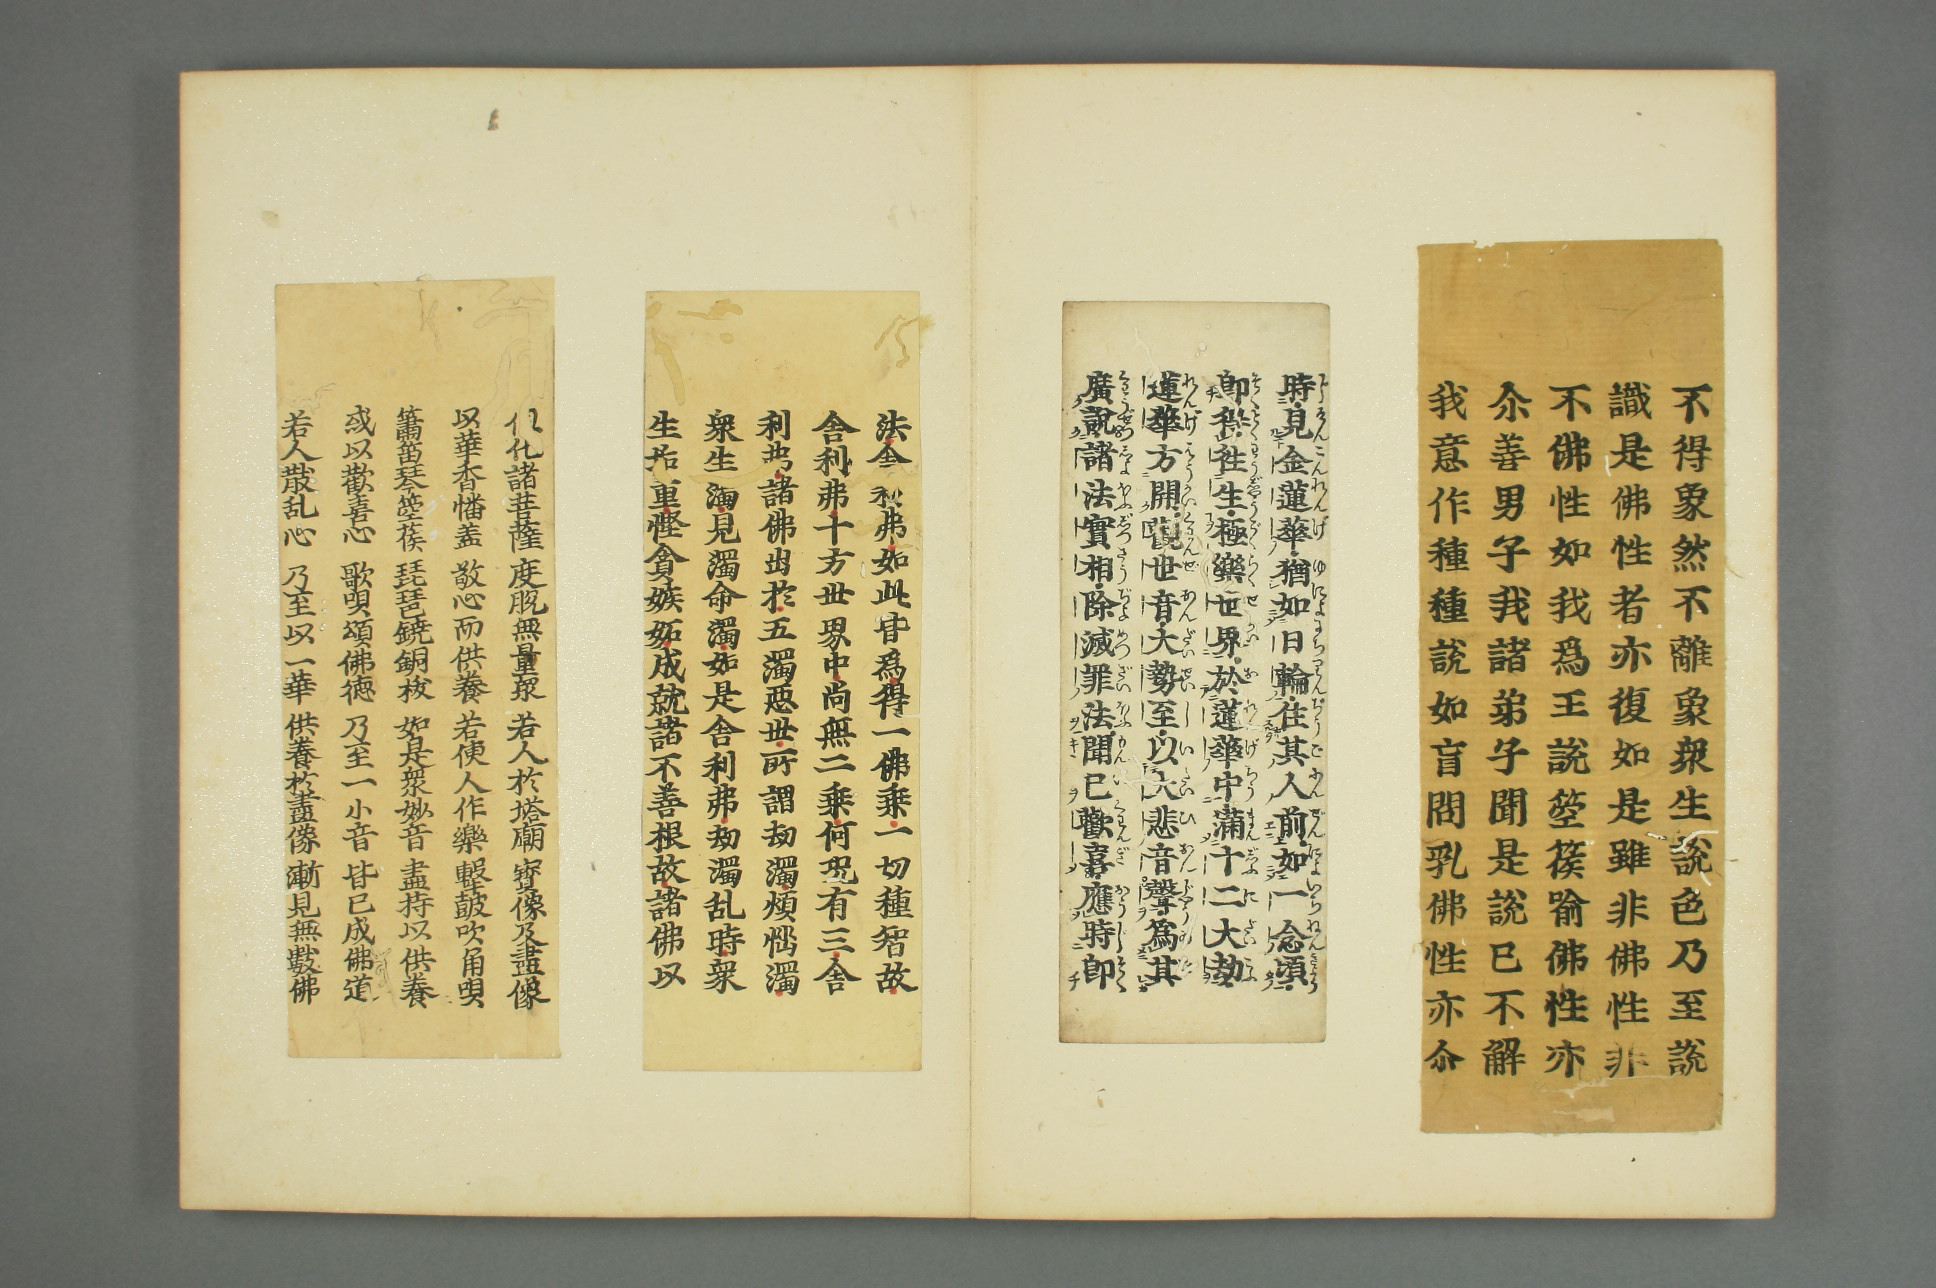 不得象然不離象衆生說色乃至說
識是佛性者亦復如是雖非佛性非
不佛性如我爲王說箜篌喻佛性亦
尒善男子我諸弟子聞是說已不解
我意作種種說如盲問乳佛性亦尒
時見金蓮華猶如日輪住其人前如一念頃
即得往生極樂世界於蓮華中滿十二大劫
蓮華方開觀世音大勢至以大悲音聲爲其
廣說諸法實相除滅罪法聞已歡喜應時即
法舍利弗如此皆爲得一佛乗一切種智故
舍利弗十方世界中尚無二乗何況有三舍
利弗諸佛出於五濁惡世所謂劫濁煩惱濁
衆生濁見濁命濁如是舍利弗劫濁乱時衆
生垢重慳貪嫉妬成就諸不善根故諸佛以
但化諸菩薩 度脫無量衆 若人於塔廟 寶像及畫像
以華香幡蓋 敬心而供養 若使人作樂 擊鼓吹角唄
簫笛琴箜篌 琵琶鐃銅鈸 如是衆妙音 盡持以供養
或以歡喜心 歌唄頌佛徳 乃至一小音 皆已成佛道
若人散乱心 乃至以一華 供養於畫像 漸見無數佛